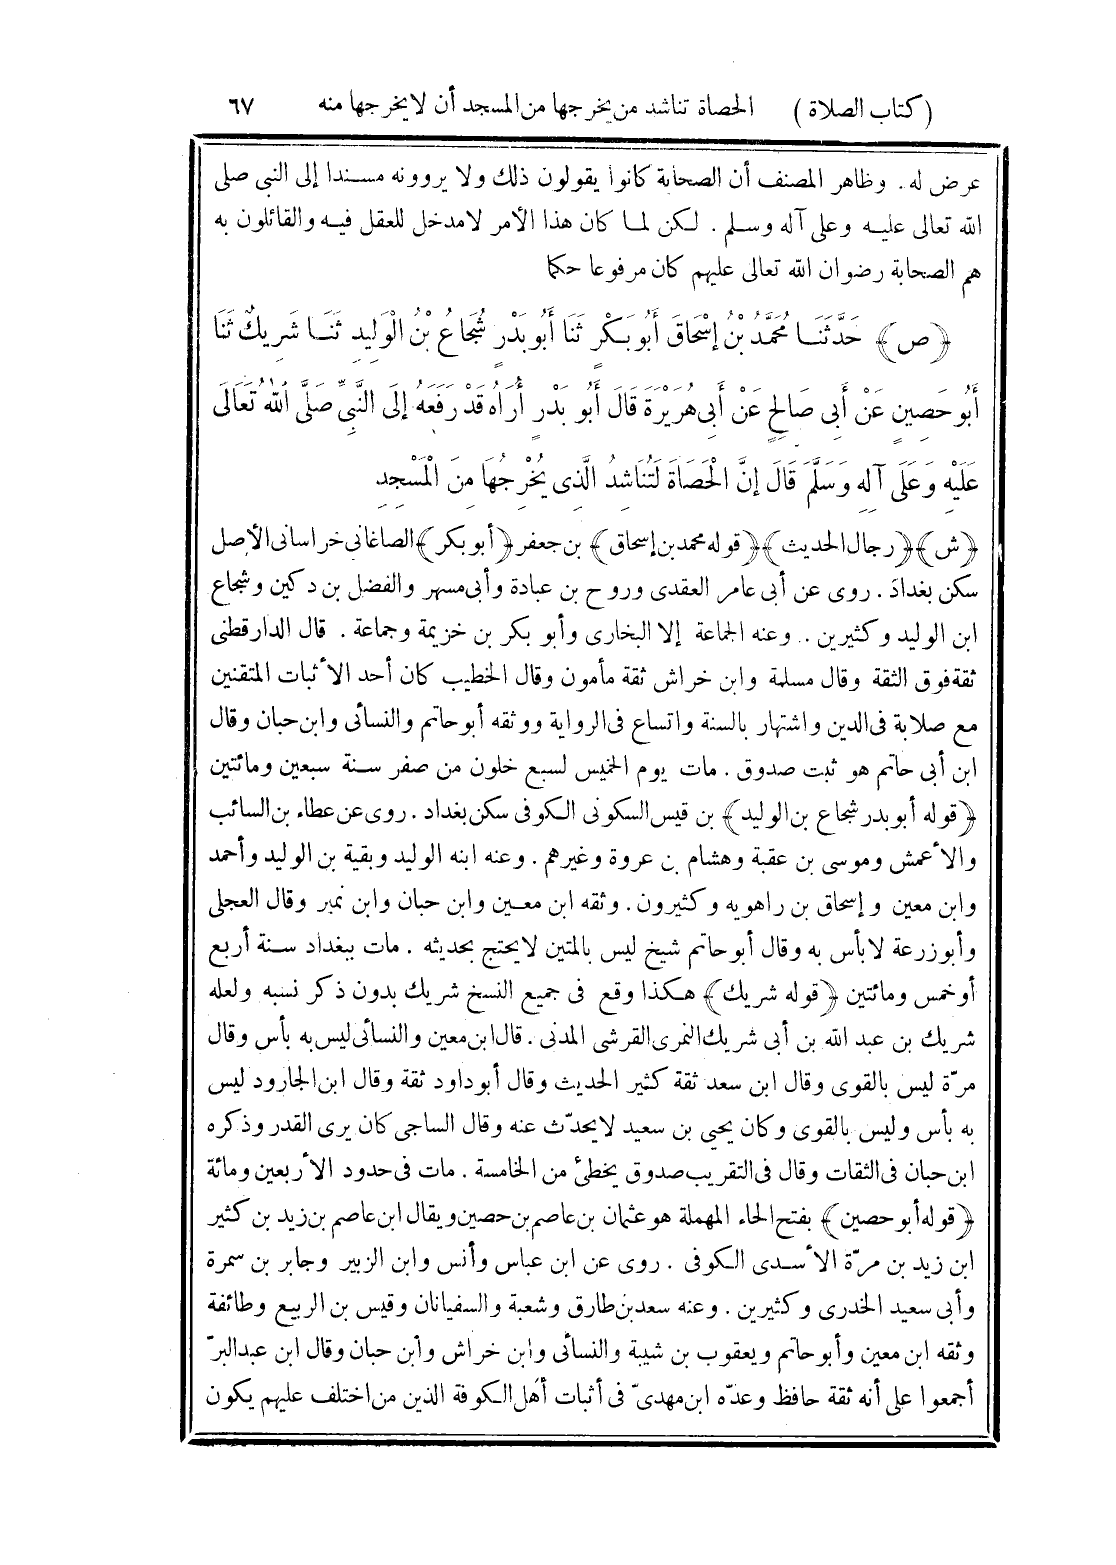 (كتاب الصلاة) الحصاة تناشد من يخرجها من المسجد أن لا يخرجها منه ٦٧
عرض له. وظاهر المصنف أن الصحابة كانوا يقولون ذلك ولا يروونه مسندا إلى النبي صلى
الله تعالى عليه وعلى آله وسلم. لكن لما كان هذا الأمر لا مدخل للعقل فيه والقائلون به
هم الصحابة رضوان الله تعالى عليهم كان مرفوعا حكما
﴿ص﴾ حَدَّثَنَا مُحَمَّدُ بْنُ إِسْحَاقَ أَبُو بَكْرٍ ثَنَا أَبُو بَدْرٍ شُجَاعُ بْنُ الْوَلِيدِ ثَنَا شَرِيكٌ ثَنَا
أَبُو حَصِينٍ عَنْ أَبِى صَالِحٍ عَنْ أَبِى هُرَيْرَةَ قَالَ أَبُو بَدْرٍ أُرَاهُ قَدْ رَفَعَهُ إِلَى النَّبِيِّ صَلَّى اللهُ تَعَالَى
عَلَيْهِ وَعَلَى آلِهِ وَسَلَّمَ قَالَ إِنَّ الْحَصَاةَ لَتُنَاشِدُ الَّذِى يُخْرِجُهَا مِنَ الْمَسْجِدِ
﴿ش﴾ ﴿رجال الحديث﴾ ﴿قوله محمد بن إسحاق﴾ بن جعفر ﴿أبو بكر﴾ الصاغانى خراسانى الأصل
سكن بغداد. روى عن أبى عامر العقدى وروح بن عبادة وأبى مسهر والفضل بن دكين وشجاع
ابن الوليد وكثيرين. وعنه الجماعة إلا البخارى وأبو بكر بن خزيمة وجماعة. قال الدارقطنى
ثقة فوق الثقة وقال مسلمة وابن خراش ثقة مأمون وقال الخطيب كان أحد الأثبات المتقنين
مع صلابة فى الدين واشتهار بالسنة واتساع فى الرواية ووثقه أبو حاتم والنسائى وابن حبان وقال
ابن أبى حاتم هو ثبت صدوق. مات يوم الخميس لسبع خلون من صفر سنة سبعين ومائتين
﴿قوله أبو بدر شجاع بن الوليد﴾ بن قيس السكونى الكوفى سكن بغداد. روى عن عطاء بن السائب
والأعمش وموسى بن عقبة وهشام بن عروة وغيرهم. وعنه ابنه الوليد وبقية بن الوليد وأحمد
وابن معين وإسحاق بن راهويه وكثيرون. وثقه ابن معين وابن حبان وابن نمير وقال العجلى
وأبو زرعة لا بأس به وقال أبو حاتم شيخ ليس بالمتين لا يحتج بحديثه. مات ببغداد سنة أربع
أو خمس ومائتين ﴿قوله شريك﴾ هكذا وقع فى جميع النسخ شريك بدون ذكر نسبه ولعله
شريك بن عبد الله بن أبى شريك النمرى القرشى المدنى. قال ابن معين والنسائى ليس به بأس وقال
مرّة ليس بالقوى وقال ابن سعد ثقة كثير الحديث وقال أبو داود ثقة وقال ابن الجارود ليس
به بأس وليس بالقوى وكان يحيى بن سعيد لا يحدّث عنه وقال الساجى كان يرى القدر وذكره
ابن حبان فى الثقات وقال فى التقريب صدوق يخطئ من الخامسة. مات فى حدود الأربعين ومائة
﴿قوله أبو حصين﴾ بفتح الحاء المهملة هو عثمان بن عاصم بن حصين ويقال ابن عاصم بن زيد بن كثير
ابن زيد بن مرّة الأسدى الكوفى. روى عن ابن عباس وأنس وابن الزبير وجابر بن سمرة
وأبى سعيد الخدرى وكثيرين. وعنه سعد بن طارق وشعبة والسفيانان وقيس بن الربيع وطائفة
وثقه ابن معين وأبو حاتم ويعقوب بن شيبة والنسائى وابن خراش وابن حبان وقال ابن عبد البرّ
أجمعوا على أنه ثقة حافظ وعدّه ابن مهدىّ فى أثبات أهل الكوفة الذين من اختلف عليهم يكون